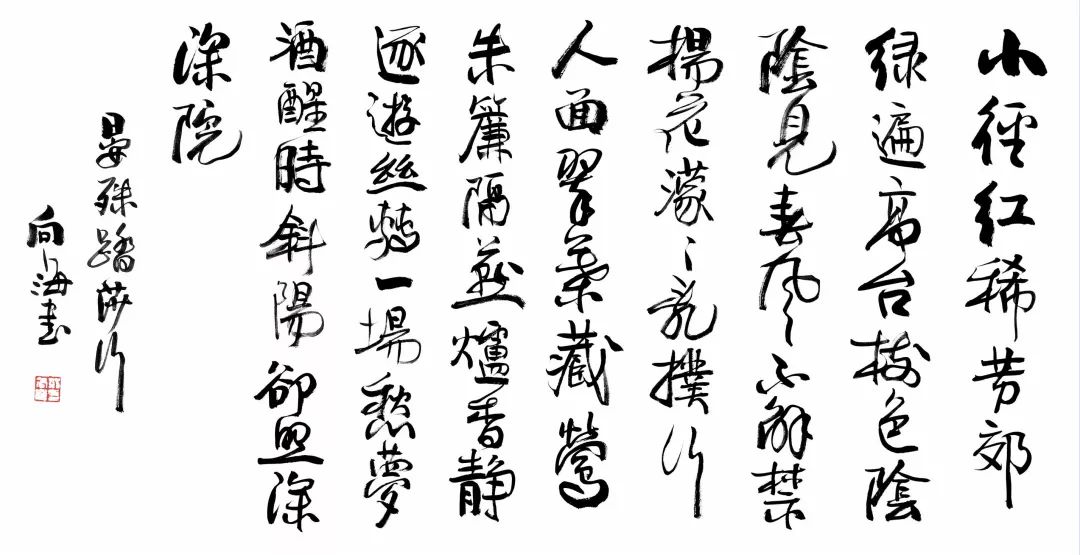 小徑红稀芳郊
绿遍高台樹色陰
陰見春风不解禁
楊花濛〻乱撲行
人面翠葉藏鶯
朱簾隔燕爐香静
逐遊絲轉一場愁夢
酒醒時斜陽卻照深
深院
晏殊踏莎行
向海書